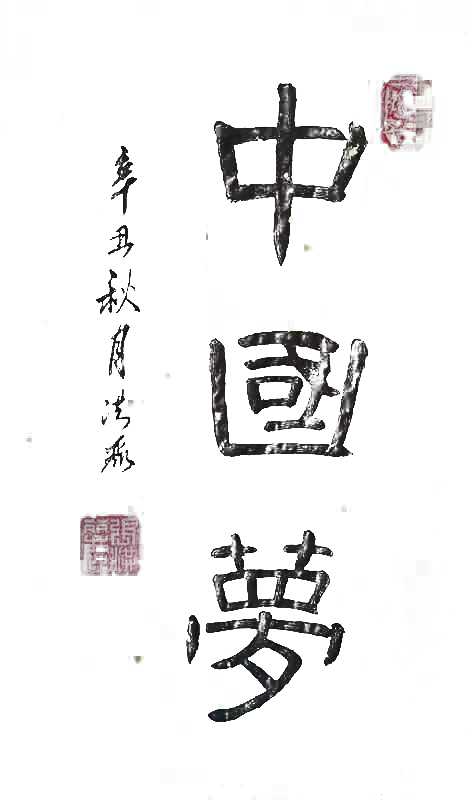 中國夢
辛丑秋月洪